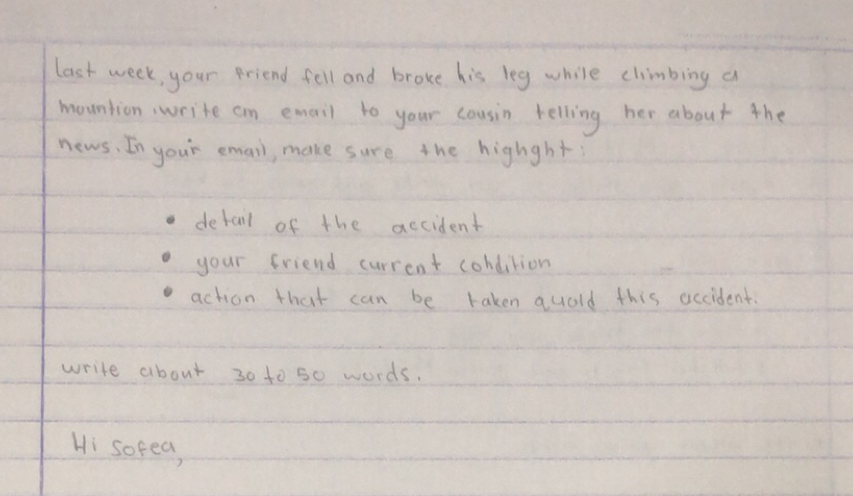 last week, your friend fell and broke his leg while climbing a
mountion .write an email to your cousin telling her about the
news. In your email, make sure the highght:
• detail of the accident
• your friend current condition
• action that can be taken quold this accident.
write about 30 to 50 words.
Hi Sofea,